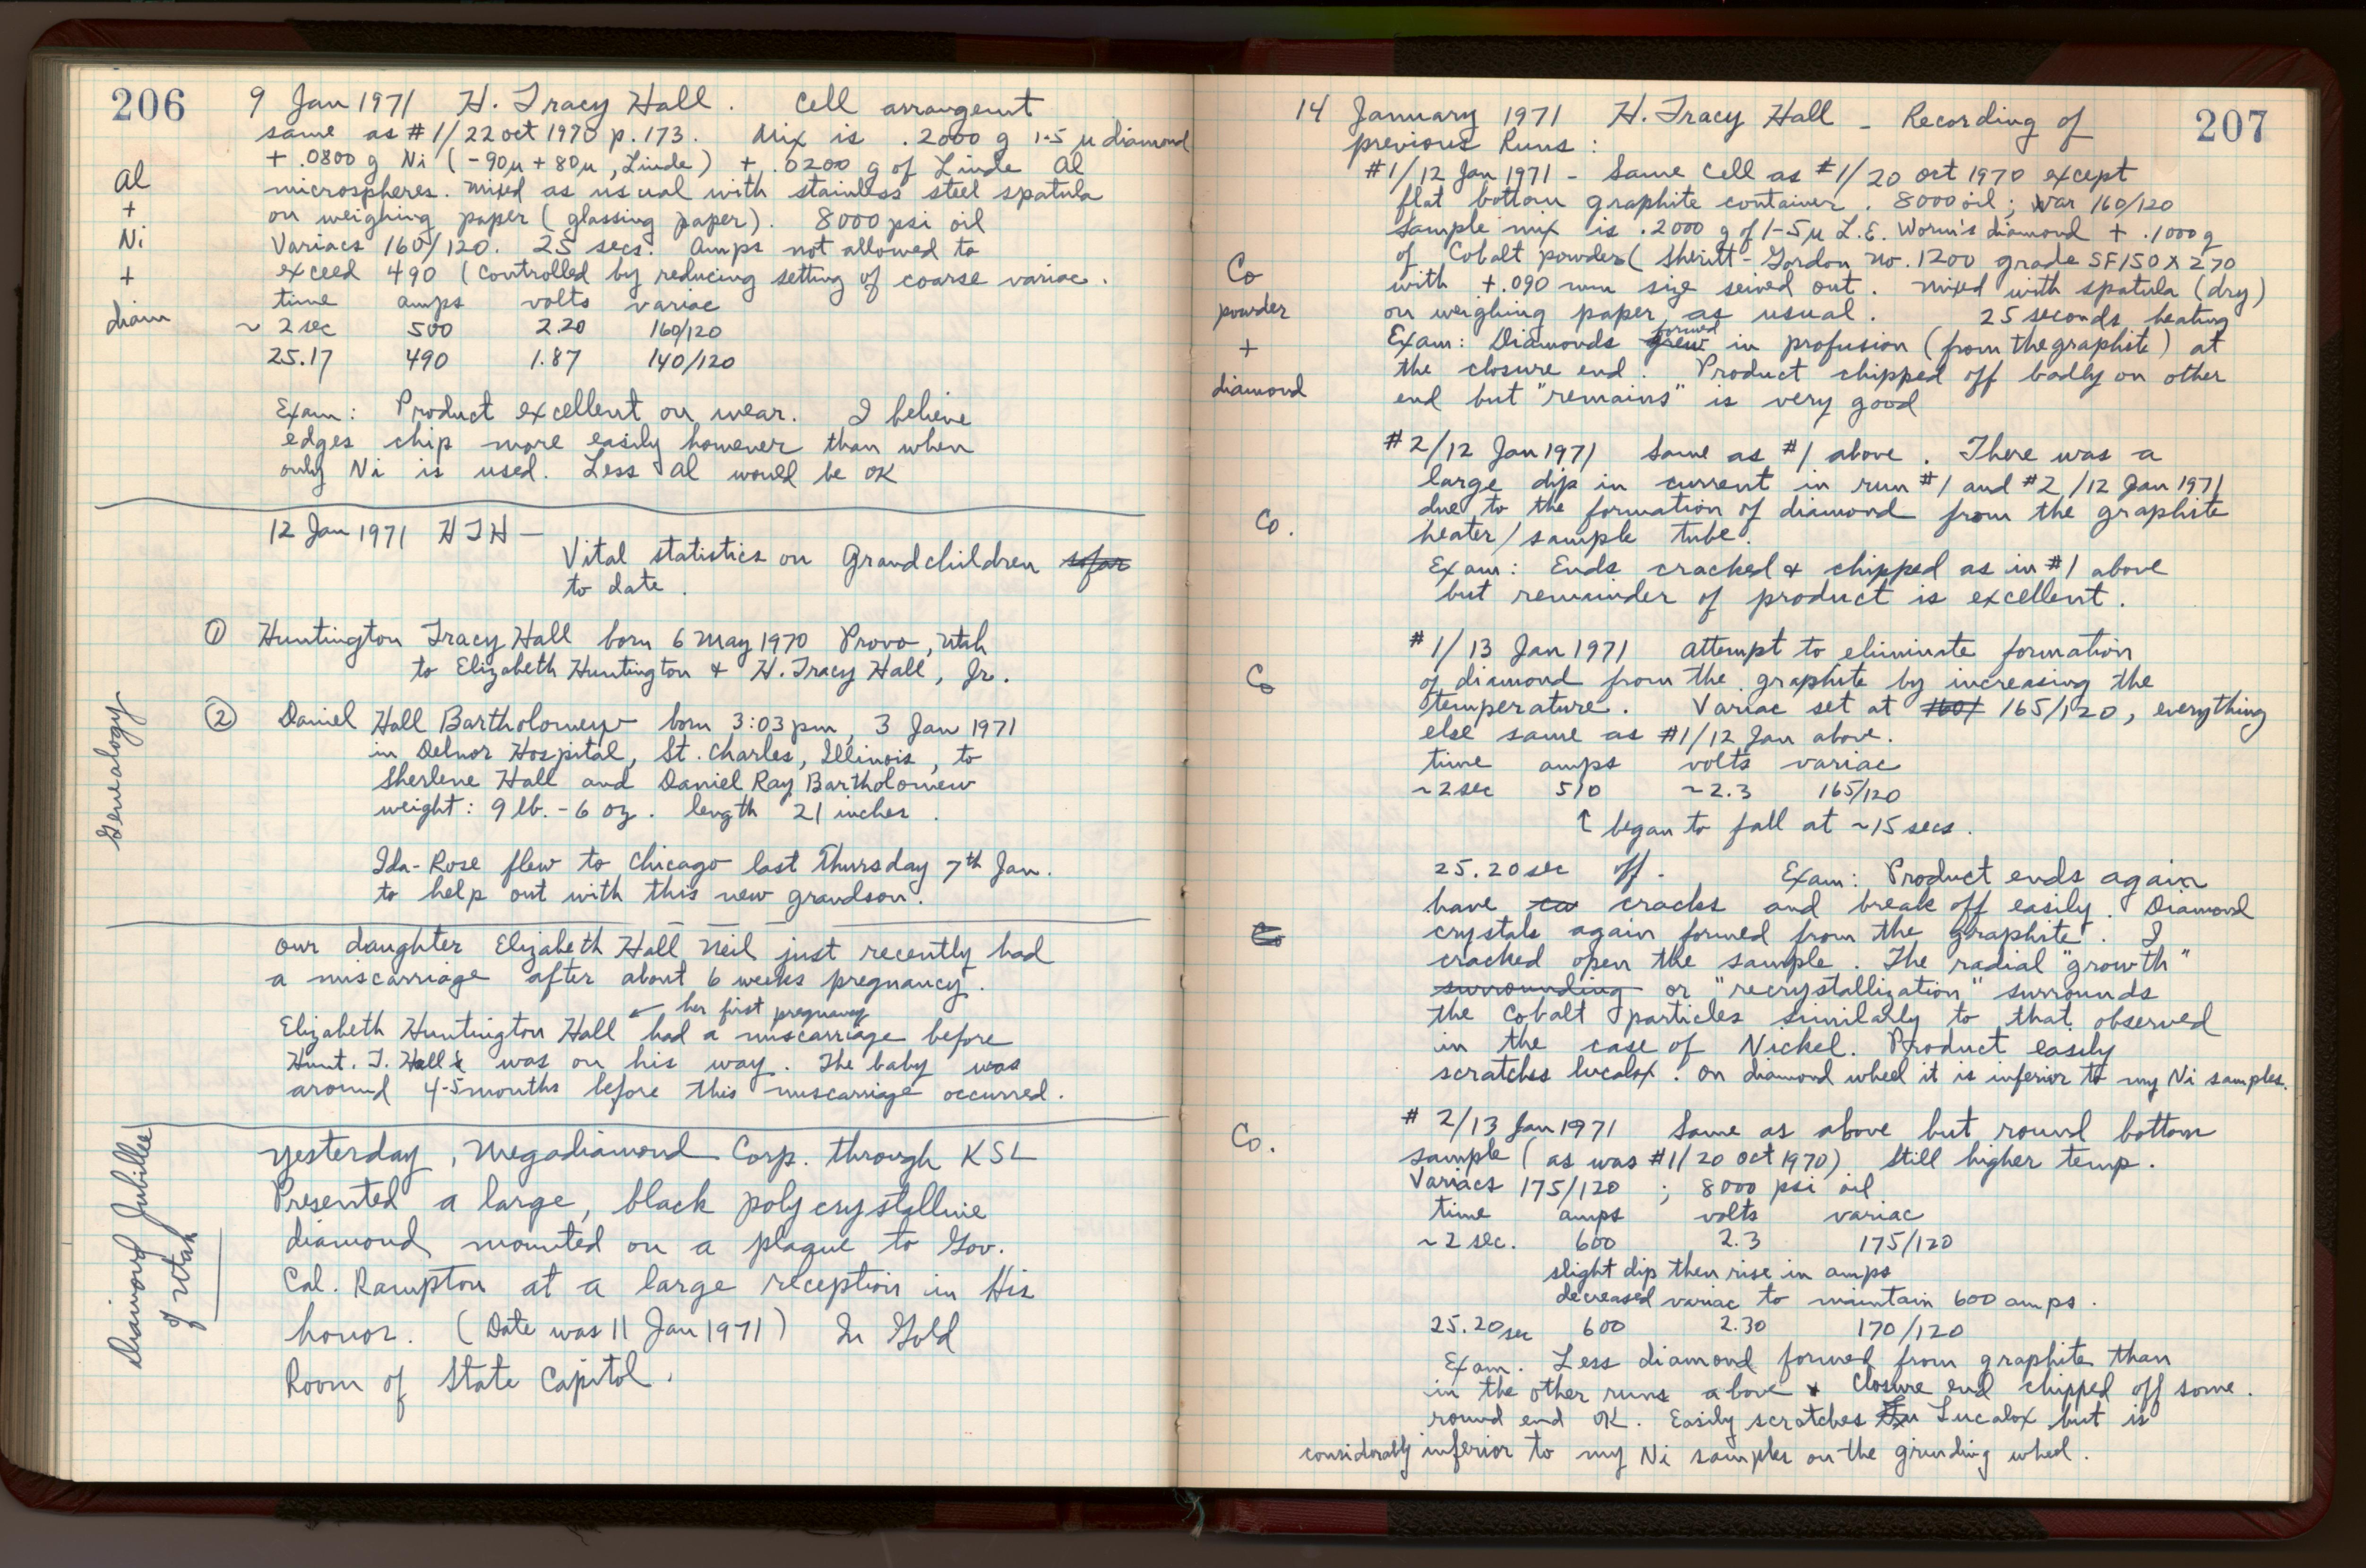 206
9 Jan 1971 H. Tracy Hall. Cell arrangemt
same as #1/22 oct 1970 p. 173. Mix is .2000 g 1-5 μ diamond
+ .0800 g Ni (-90μ + 80μ, Linde) + .0200 g of Linde Al
microspheres. mixed as usual with stainless steel spatula
on weighing paper (glassing paper). 8000 psi oil
Variacs 160/120. 25 secs. Amps not allowed to
exceed 490 (controlled by reducing setting of coarse variac.
Al
+
Ni
+
diam
time amps volts variac
~ 2 sec 500 2.20 160/120
25.17 490 1.87 140/120
Exam: Product excellent on wear. I believe
edges chip more easily however than when
only Ni is used. Less Al would be OK
12 Jan 1971 HTH —
Vital statistics on Grandchildren sofar
to date.
Genealogy
① Huntington Tracy Hall born 6 May 1970 Provo, Utah
to Elizabeth Huntington & H. Tracy Hall, Jr.
② Daniel Hall Bartholomew born 3:03 pm, 3 Jan 1971
in Delnor Hospital, St. Charles, Illinois, to
Sherlene Hall and Daniel Ray Bartholomew
weight: 9 lb. - 6 oz. length 21 inches.
Ida-Rose flew to Chicago last Thursday 7th Jan.
to help out with this new grandson.
our daughter Elizabeth Hall Neil just recently had
a miscarriage after about 6 weeks pregnancy.
← her first pregnancy
Elizabeth Huntington Hall had a miscarriage before
Hunt. T. Hall's was on his way. The baby was
around 4-5 months before this miscarriage occurred.
Diamond Jubillee
of Utah
yesterday, Megadiamond Corp. through KSL
Presented a large, black polycrystalline
diamond mounted on a plaque to Gov.
Cal. Rampton at a large reception in His
honor. (Date was 11 Jan 1971) In Gold
Room of State Capitol.
207
14 January 1971 H. Tracy Hall - Recording of
previous Runs:
#1/12 Jan 1971 - Same Cell as #1/20 oct 1970 except
flat bottom graphite container. 8000 oil; Var 160/120
Sample mix is .2000 g of 1-5μ L.E. Worm's diamond + .1000 g
of Cobalt powder (Sherritt-Gordon no. 1200 grade SF150X270
with +.090 mm size seived out. mixed with spatula (dry)
on weighing paper as usual. 25 seconds heating
Co
powder
+
diamond
Exam: Diamonds grew formed in profusion (from the graphite) at
the closure end. Product chipped off badly on other
end but "remains" is very good
#2/12 Jan 1971 Same as #1 above. There was a
large dip in current in run #1 and #2/12 Jan 1971
Co.
due to the formation of diamond from the graphite
heater/sample tube.
Exam: Ends cracked & chipped as in #1 above
but remainder of product is excellent.
#1/13 Jan 1971 attempt to eliminate formation
Co
of diamond from the graphite by increasing the
temperature. Variac set at 160/ 165/120, everything
else same as #1/12 Jan above.
time amps volts variac
~2 sec 510 ~2.3 165/120
↑ began to fall at ~15 secs.
25.20 sec off. Exam: Product ends again
have ca cracks and break off easily. Diamond
Co
crystals again formed from the graphite. I
cracked open the sample. The radial "growth"
surrounding or "recrystallization" surrounds
the Cobalt particles similarly to that observed
in the case of Nickel. Product easily
scratches lucalox. On diamond wheel it is inferior to my Ni samples.
#2/13 Jan 1971 Same as above but round bottom
Co.
sample (as was #1/20 oct 1970). Still higher temp.
Variacs 175/120 ; 8000 psi oil
time amps volts variac
~2 sec. 600 2.3 175/120
slight dip then rise in amps
decreased variac to maintain 600 amps.
25.20 sec 600 2.30 170/120
Exam. Less diamond formed from graphite than
in the other runs above & closure end chipped off some.
round end OK. Easily scratches Lucalox but is
considerably inferior to my Ni samples on the grinding wheel.